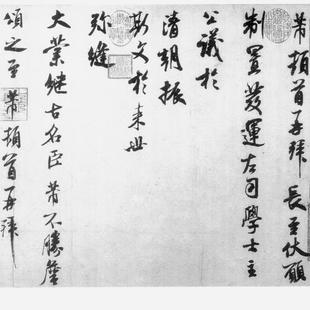 芾頓首再拜長至伏願
制置發運左司學士主
公議於
清朝振
斯文於來世
弥縫
大業継古名臣芾不勝𢥠
頌之至芾頓首再拜